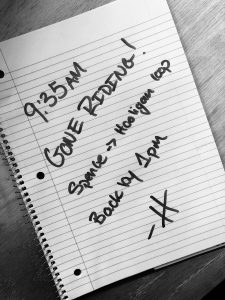 9:35AM
GONE RIDING!
Spance → Hooligan loop
Back by 1pm
-H